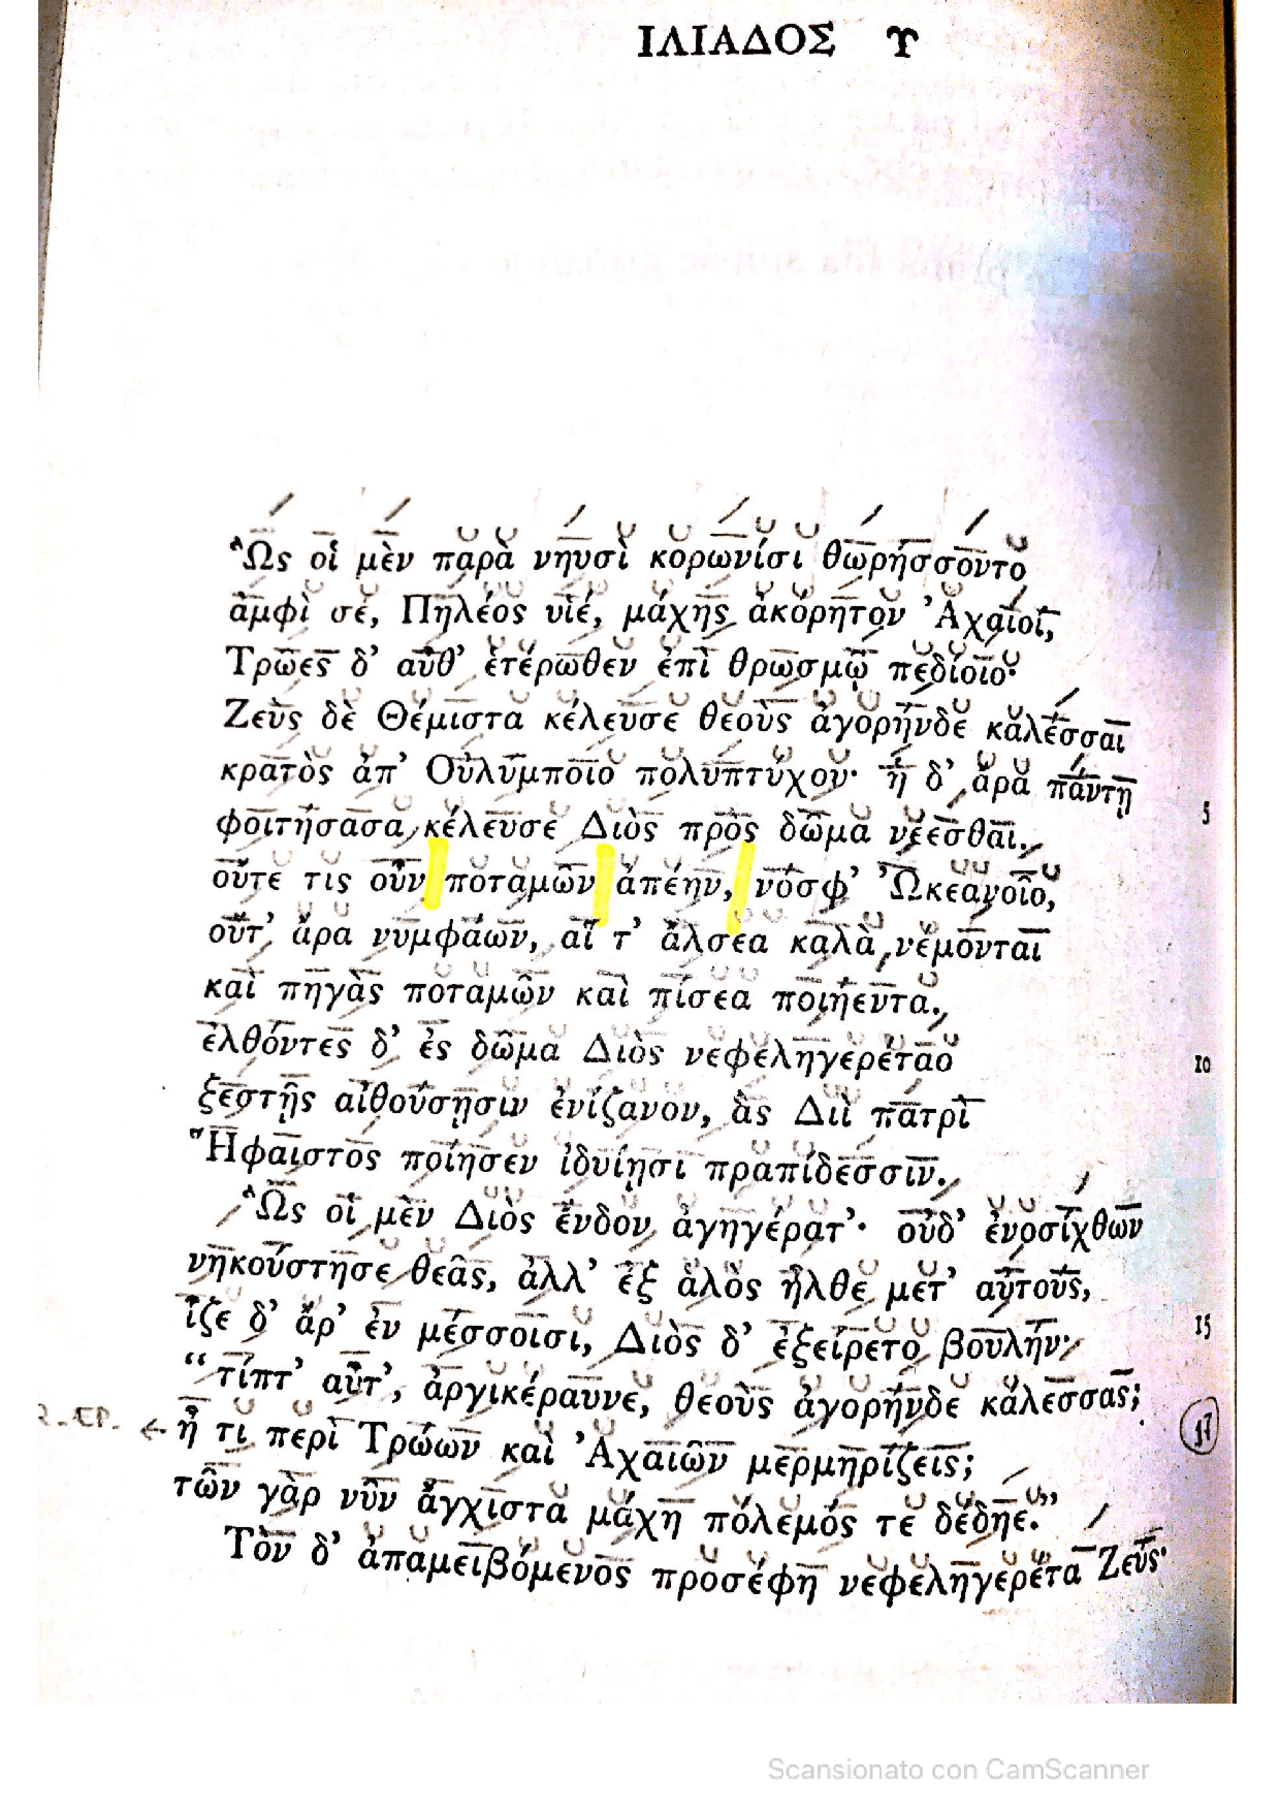 ΙΛΙΑΔΟΣ Υ
Ὣς οἱ μὲν παρὰ νηυσὶ κορωνίσι θωρήσσοντο
ἀμφὶ σέ, Πηλέος υἱέ, μάχης ἀκόρητον Ἀχαιοί,
Τρῶες δ’ αὖθ’ ἑτέρωθεν ἐπὶ θρωσμῷ πεδίοιο·
Ζεὺς δὲ Θέμιστα κέλευσε θεοὺς ἀγορήνδε καλέσσαι
κρατὸς ἀπ’ Οὐλύμποιο πολυπτύχου· ἡ δ’ ἄρα πάντῃ
φοιτήσασα κέλευσε Διὸς πρὸς δῶμα νέεσθαι. 5
οὔτε τις οὖν ποταμῶν ἀπέην, νόσφ’ Ὠκεανοῖο,
οὔτ’ ἄρα νυμφάων, αἵ τ’ ἄλσεα καλὰ νέμονται
καὶ πηγὰς ποταμῶν καὶ πίσεα ποιήεντα.
ἐλθόντες δ’ ἐς δῶμα Διὸς νεφεληγερέταο 10
ξεστῇς αἰθούσῃσιν ἐνίζανον, ἃς Διὶ πατρὶ
Ἥφαιστος ποίησεν ἰδυίῃσι πραπίδεσσιν.
Ὣς οἱ μὲν Διὸς ἔνδον ἀγηγέρατ’· οὐδ’ ἐνοσίχθων
νηκούστησε θεᾶς, ἀλλ’ ἐξ ἁλὸς ἦλθε μετ’ αὐτούς,
ἷζε δ’ ἄρ’ ἐν μέσσοισι, Διὸς δ’ ἐξείρετο βουλήν· 15
“τίπτ’ αὖτ’, ἀργικέραυνε, θεοὺς ἀγορήνδε κάλεσσας;
ἦ τι περὶ Τρώων καὶ Ἀχαιῶν μερμηρίζεις; 17
τῶν γὰρ νῦν ἄγχιστα μάχη πόλεμός τε δέδηε.”
Τὸν δ’ ἀπαμειβόμενος προσέφη νεφεληγερέτα Ζεύς·
Scansionato con CamScanner